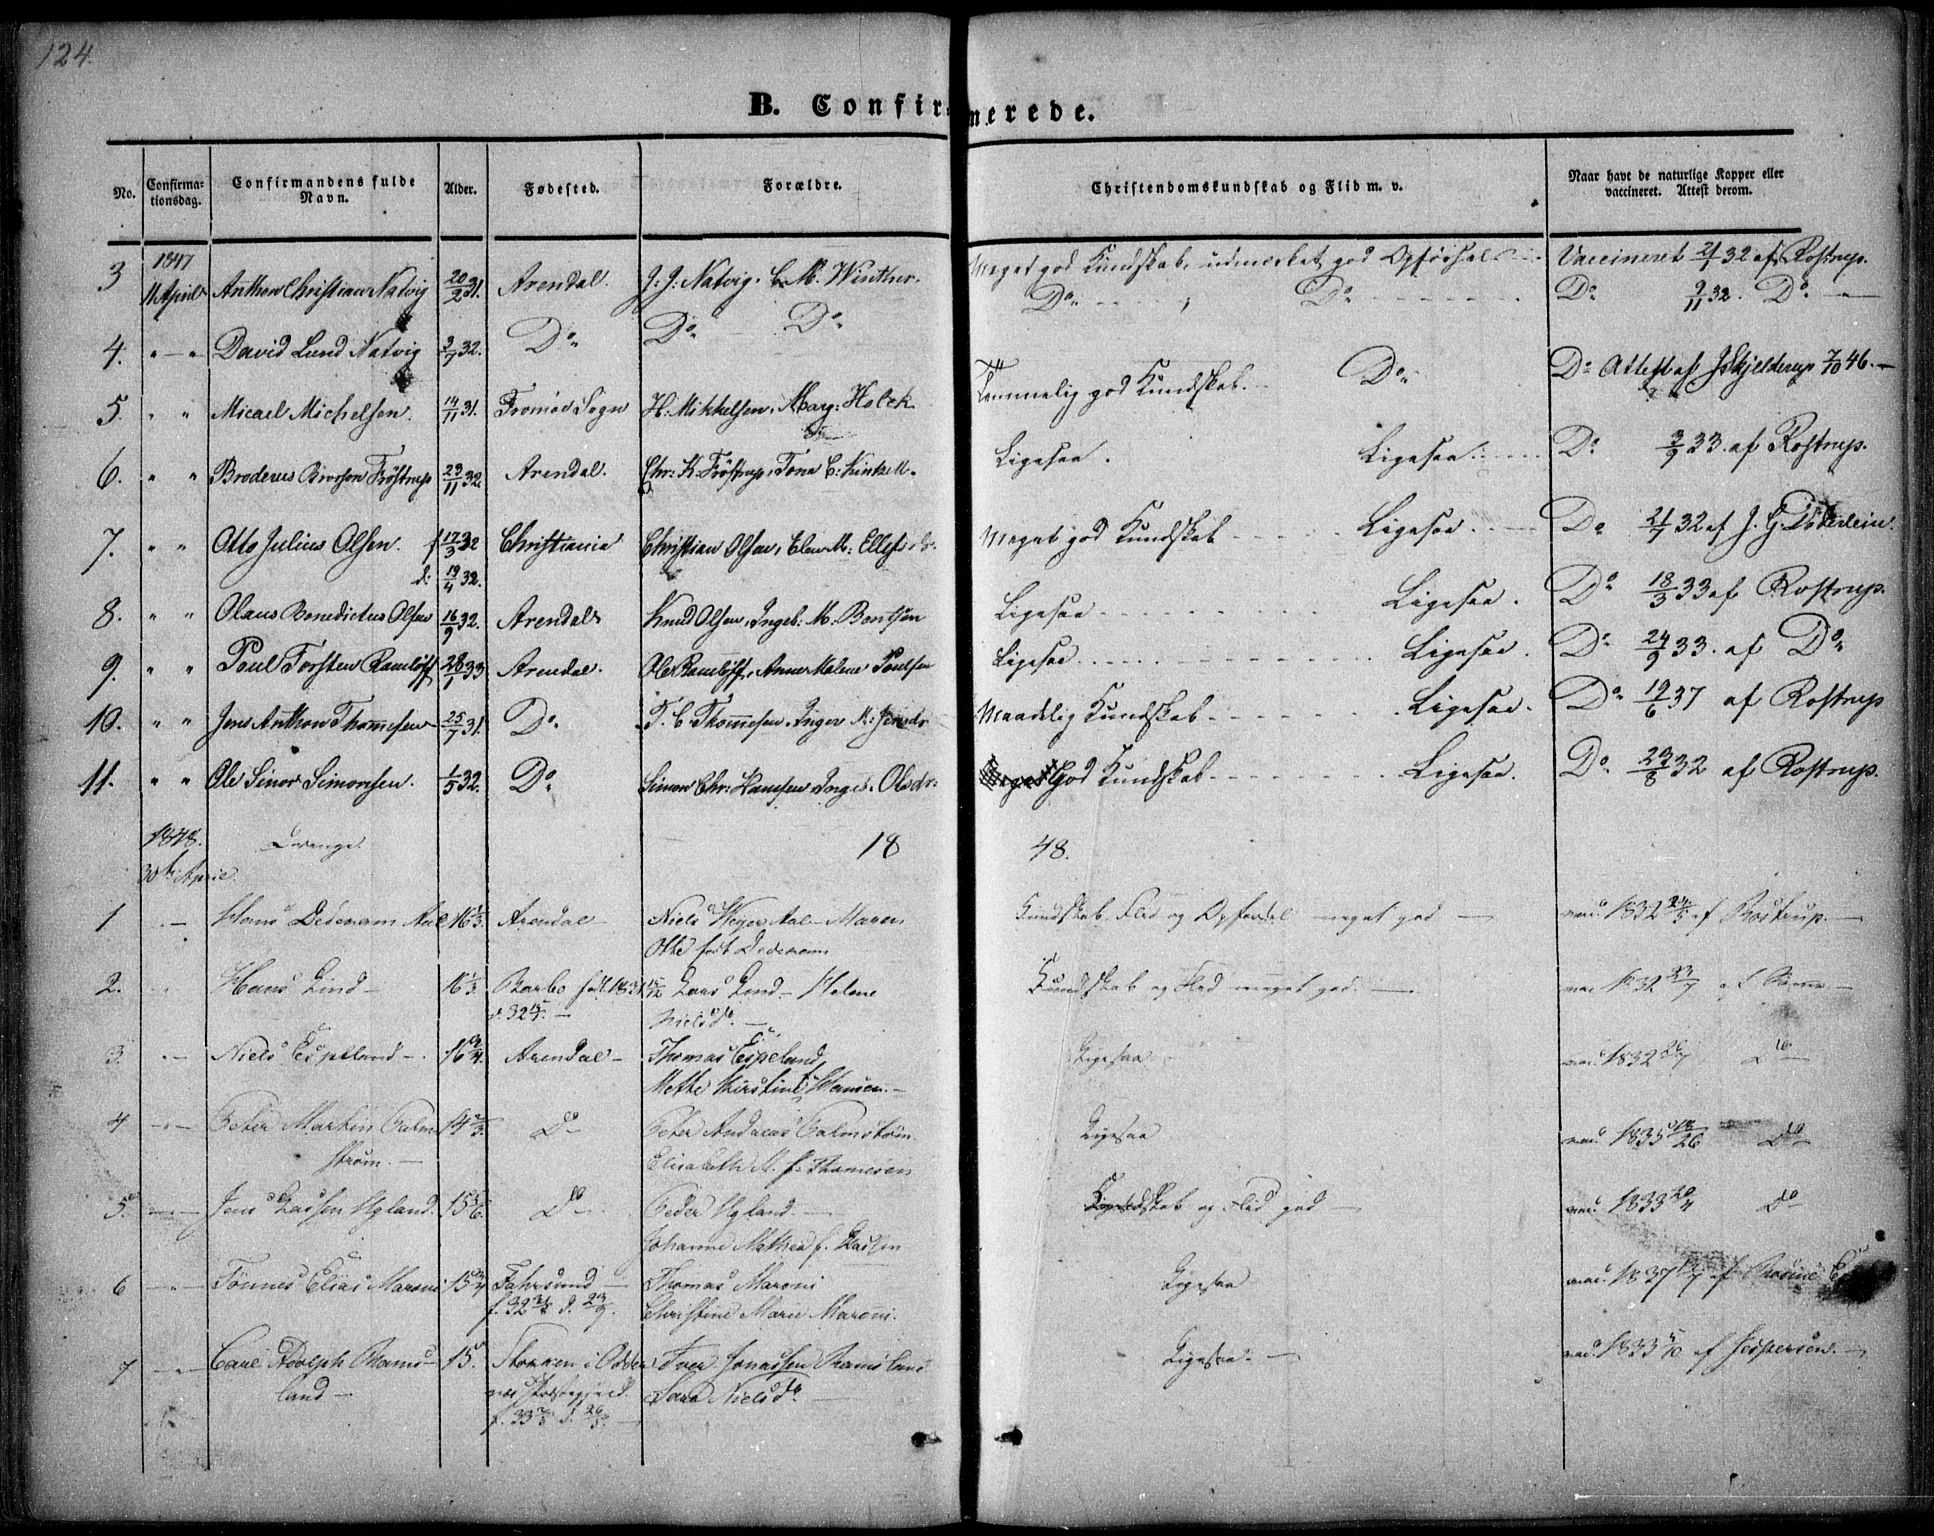 124.
B. Confirmerede.
No. Confirmationsdag. Confirmandens fulde Navn. Alder. Fødested. Forældre. Christendomskundskab og Flid m. v. Naar havt de naturlige Kopper eller vaccineret. Attest derom.
3 1847 11 April Anthon Christian Natvig 20/2 31. Arendal. J. J. Natvig. C. M. Winther. Meget god Kundskab, udmærket god Opførsel Vaccineret 21/1 32 af Rostrup.
4. " — " David Lund Natvig 3/7 32. Do Do Do Do Do Do 9/11 32. Do —
5. " " Micael Michelsen. 14/11 31. Tromøe Sogn H. Mikkelsen, Marg: Holck Temmelig god Kundskab. Do Do Attest af J. Skjelderup 7/10 46. —
6. " " Broderus Brorson Frøstrup 23/11 32 Arendal. Chr: K. Frøstrup, Tona C. Ligesaa. Ligesaa. Do 3/9 33. af Rostrup.
7. " " Otto Julius Olsen. f 17/3 32 d. 19/4 32. Christiania Christian Olsen, Elen M: Meget god Kundskab Ligesaa. Do 21/7 32 af J. G. Döderlein.
8. " " Olaus Benedictus Olsen 16/9 32. Arendal Knud Olsen, Ingeb: M. Bentsen Ligesaa Ligesaa. Do 18/3 33 af Rostrup.
9. " " Poul Torsten Ramløff 28/1 33 Arendal. Ole Ramløff, Anne Malene Poulsen Ligesaa Ligesaa. Do 24/9 33. af Do
10. " " Jens Anthon Thommesen 25/7 31. Do T. C. Thommesen, Inger M: Jensdr Maadelig Kundskab Ligesaa. Do 19/6 37 af Rostrup
11. " " Ole Simon Simonsen. 1/5 32. Do Simon Chr: Hansen, Ingeb. Olsdr: God Kundskab Ligesaa. Do 23/8 32 af Rostrup.
1848. 30te April Drenge. 18 48.
1 — Hans Dedekam Aal 16 1/3. Arendal Niels Weyer Aal — Maren
Otte født Dedekam Kundskab, Flid og Opførsel meget god — vac. 1832 af Rostrup. —
2. Hans Lind — 16 1/3 Barbo født 1831 Lars Lind — Helene
Nielsd. — Kundskab og Flid meget god. — vac 1832 af
3. — Niels Espeland —. 16 3/4 Arendal — Thomas Espeland,
Mette Kirstine Hansen. — Ligesaa vac. 1832 Do
4 — Peter Martin Palmstrøm. — 14 2/3. Do Peter Andreas Palmstrøm
Elisabeth M. f. Thomesen Ligesaa vac. 1835 Do
5. — Jens Lassen Ugland. 15 5/6. Do Peder Ugland. —
Johanne Mathea f. Lassen Kundskab og Flid god — vac. 1833 Do
6 — Tønnes Elias Maroni 15 3/4 Fahrsund —
f. 32 Thomas Maroni
Christine Marie Maroni. Ligesaa vac. 1837 af
7 — Carl Adolph Ramsland — 15. i Odder
f. 33 Iver Jonassen Ramsland
Sara Nielsd. — Ligesaa. — vac. 1833 af Jespersen. —